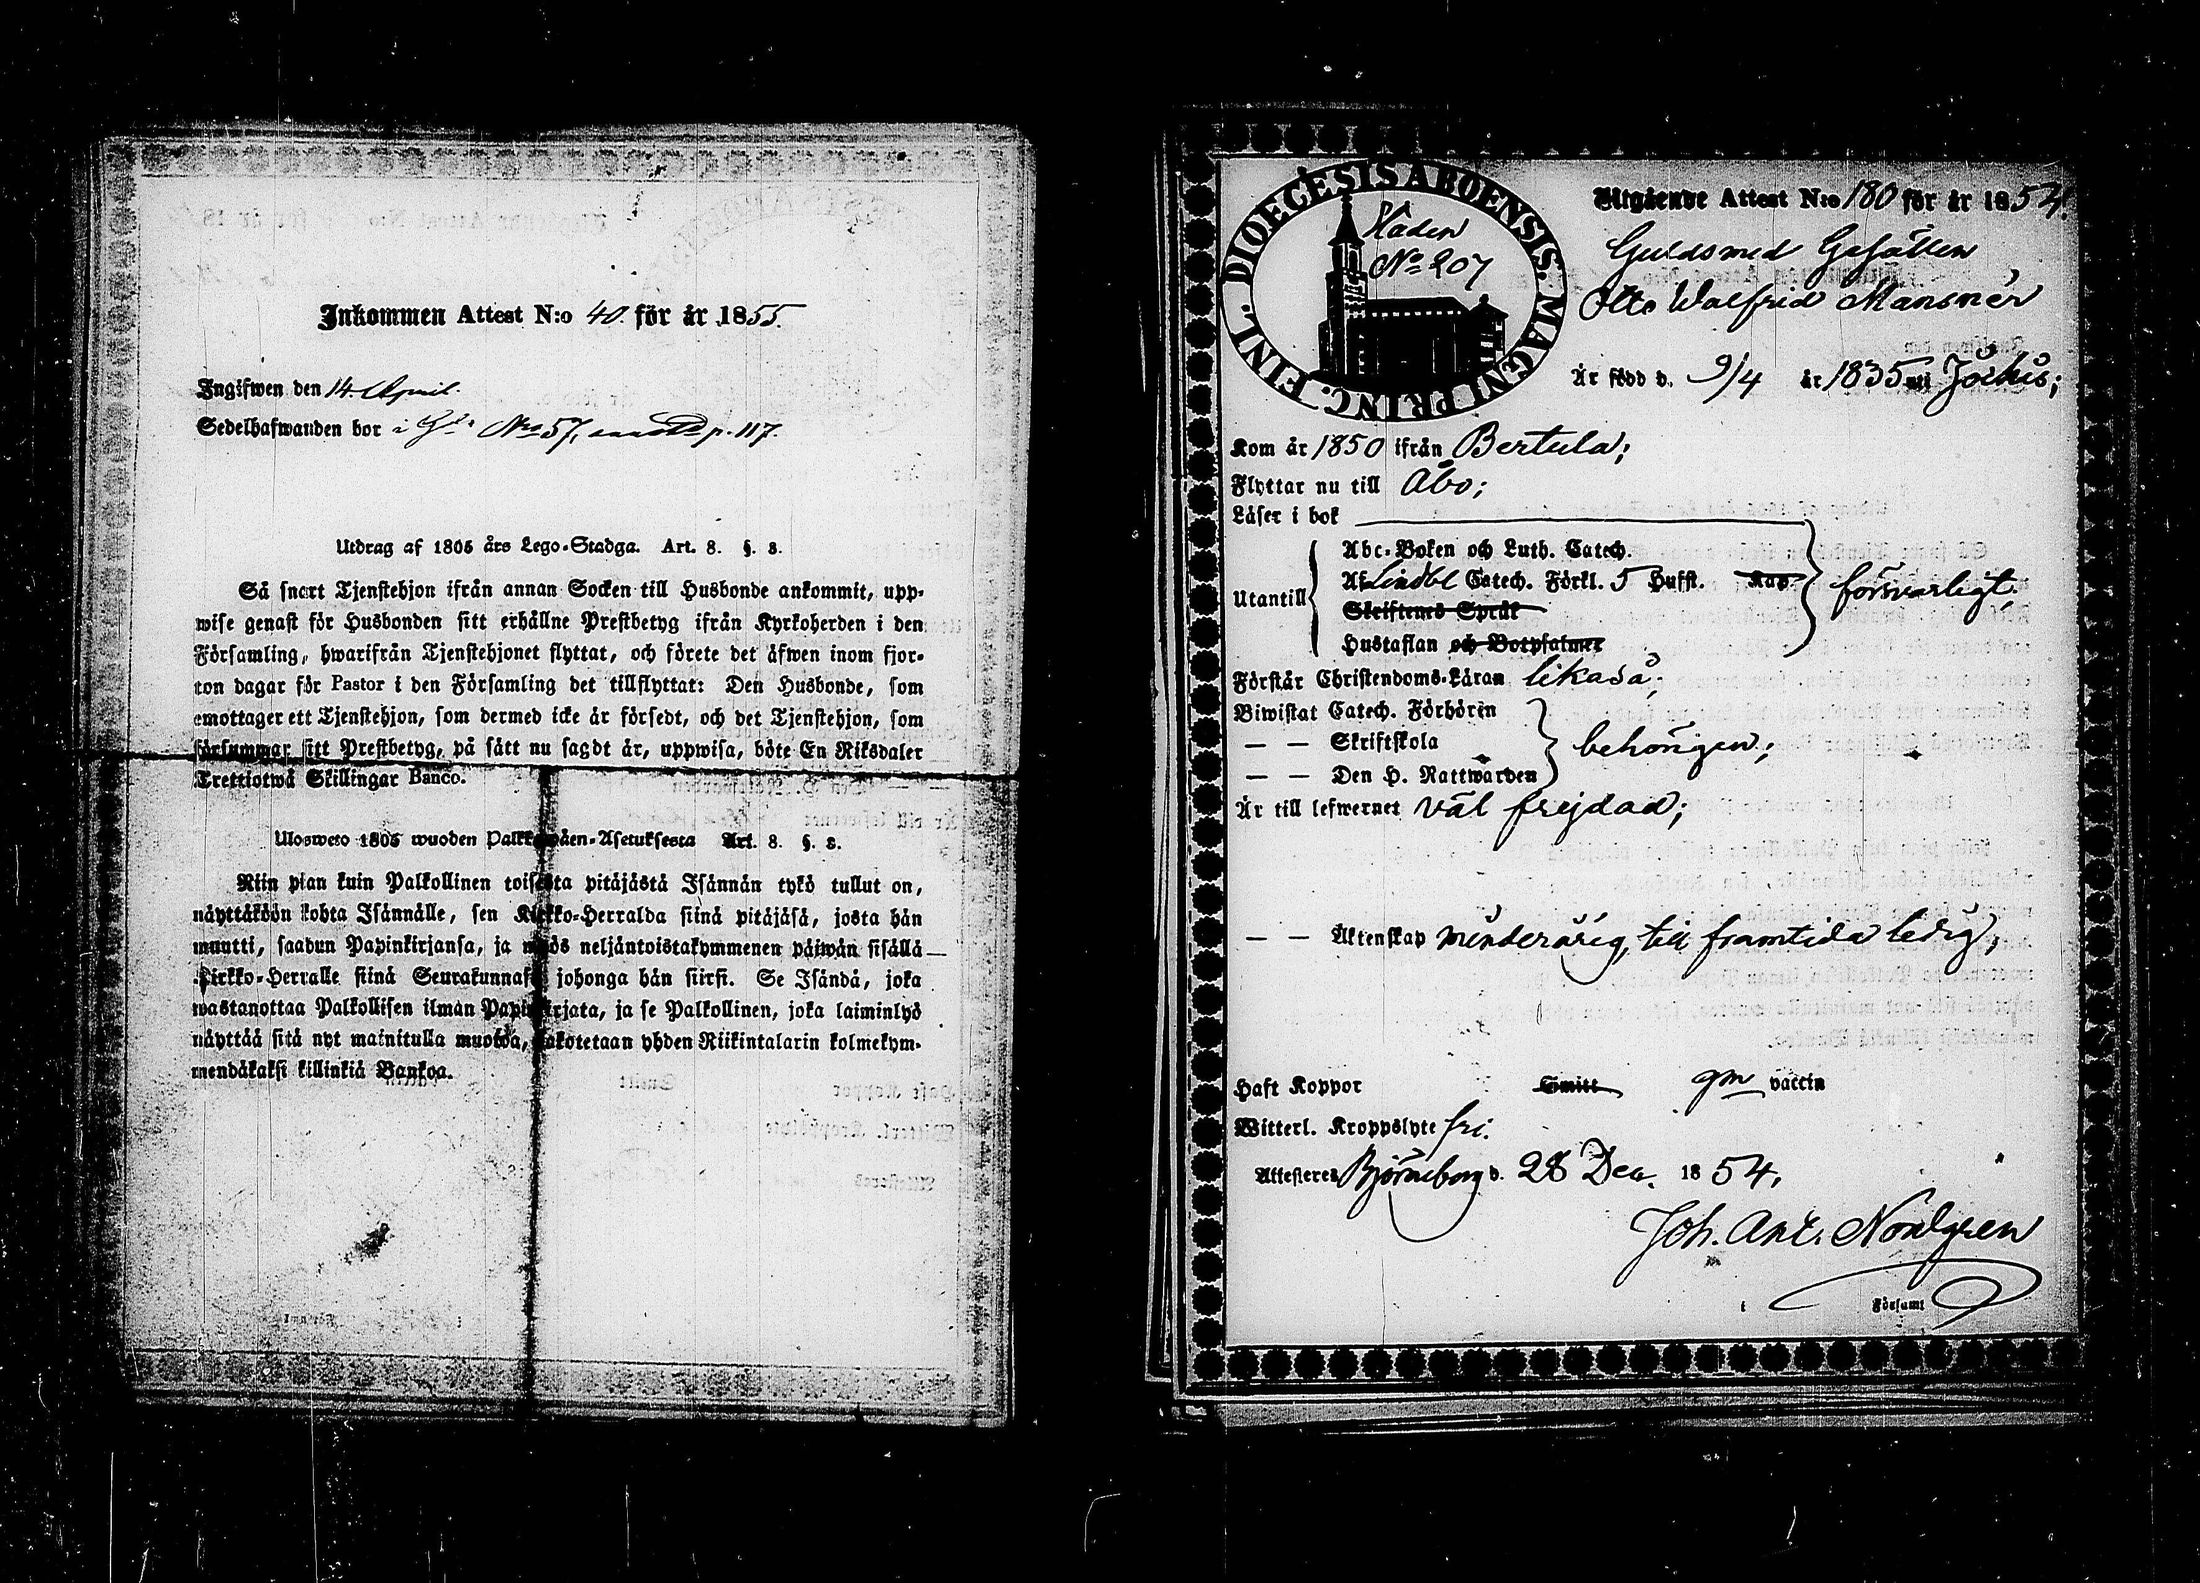 Inkommen Attest N:o 40. för år 1855.
Ingifwen den 14. April.
Sedelhafwanden bor i No 57, p. 117.
Utdrag af 1805 års Lego-Stadga. Art. 8. §. 8.
Så snart Tjenstehjon ifrån annan Socken till Husbonde ankommit, upp-
wise genast för Husbonden sitt erhållne Prestbetyg ifrån Kyrkoherden i den
Församling, hwarifrån Tjenstehjonet flyttat, och förete det äfwen inom fjor-
ton dagar för Pastor i den Församling det tillflyttat: Den Husbonde, som
emottager ett Tjenstehjon, som dermed icke är försedt, och det Tjenstehjon, som
försummar sitt Prestbetyg, på sätt nu sagdt är, uppwisa, böte En Riksdaler
Trettiotwå Skillingar Banco.
Ulosweto 1805 wuoden Palkkawäen-Asetuksesta Art. 8. §. 8.
Niin pian kuin Palkollinen toisesta pitäjästä Isännän tykö tullut on,
näyttäköön kohta Isännälle, sen Kirkko-Herralda siinä pitäjäsä, josta hän
muutti, saadun Papinkirjansa, ja myös neljäntoistakymmenen päiwän sisällä
Kirkko-Herralle siinä Seurakunnasa johonga hän siirsi. Se Isändä, joka
wastanottaa Palkollisen ilman Papinkirjata, ja se Palkollinen, joka laiminlyö
näyttää sitä nyt mainitulla muotoa, sakotetaan yhden Riikintalarin kolmekym-
mendäkaksi killinkiä Bankoa.
DIOECESIS ABOENSIS. MAGNI PRINC. FINL.
No 207
Utgående Attest N:o 180 för år 1854.
Guldsmed Gesällen
Otto Walfrid Mansnér
Är född d. 9/4 år 1835 uti Jockis;
Kom år 1850 ifrån Bertula;
Flyttar nu till Åbo;
Läser i bok
Abc-Boken och Luth. Catech.
Utantill Af Lindbl Catech. Förkl. 5 Hufst. Kap. försvarligt;
Skriftenes Språk
Hustaflan och Botpsalmer
Förstår Christendoms-Läran likaså;
Biwistat Catech. Förhören
— — Skriftskola behörigen;
— — Den H. Nattwarden
Är till lefwernet väl frejdad;
— — Äktenskap minderårig, till framtida ledig;
Haft Koppor Smitt gm vaccin
Witterl. Kroppslyte fri.
Attesteres Björneborg d. 28 Dec. 1854.
Joh. Ant. Nordgren
i Församl